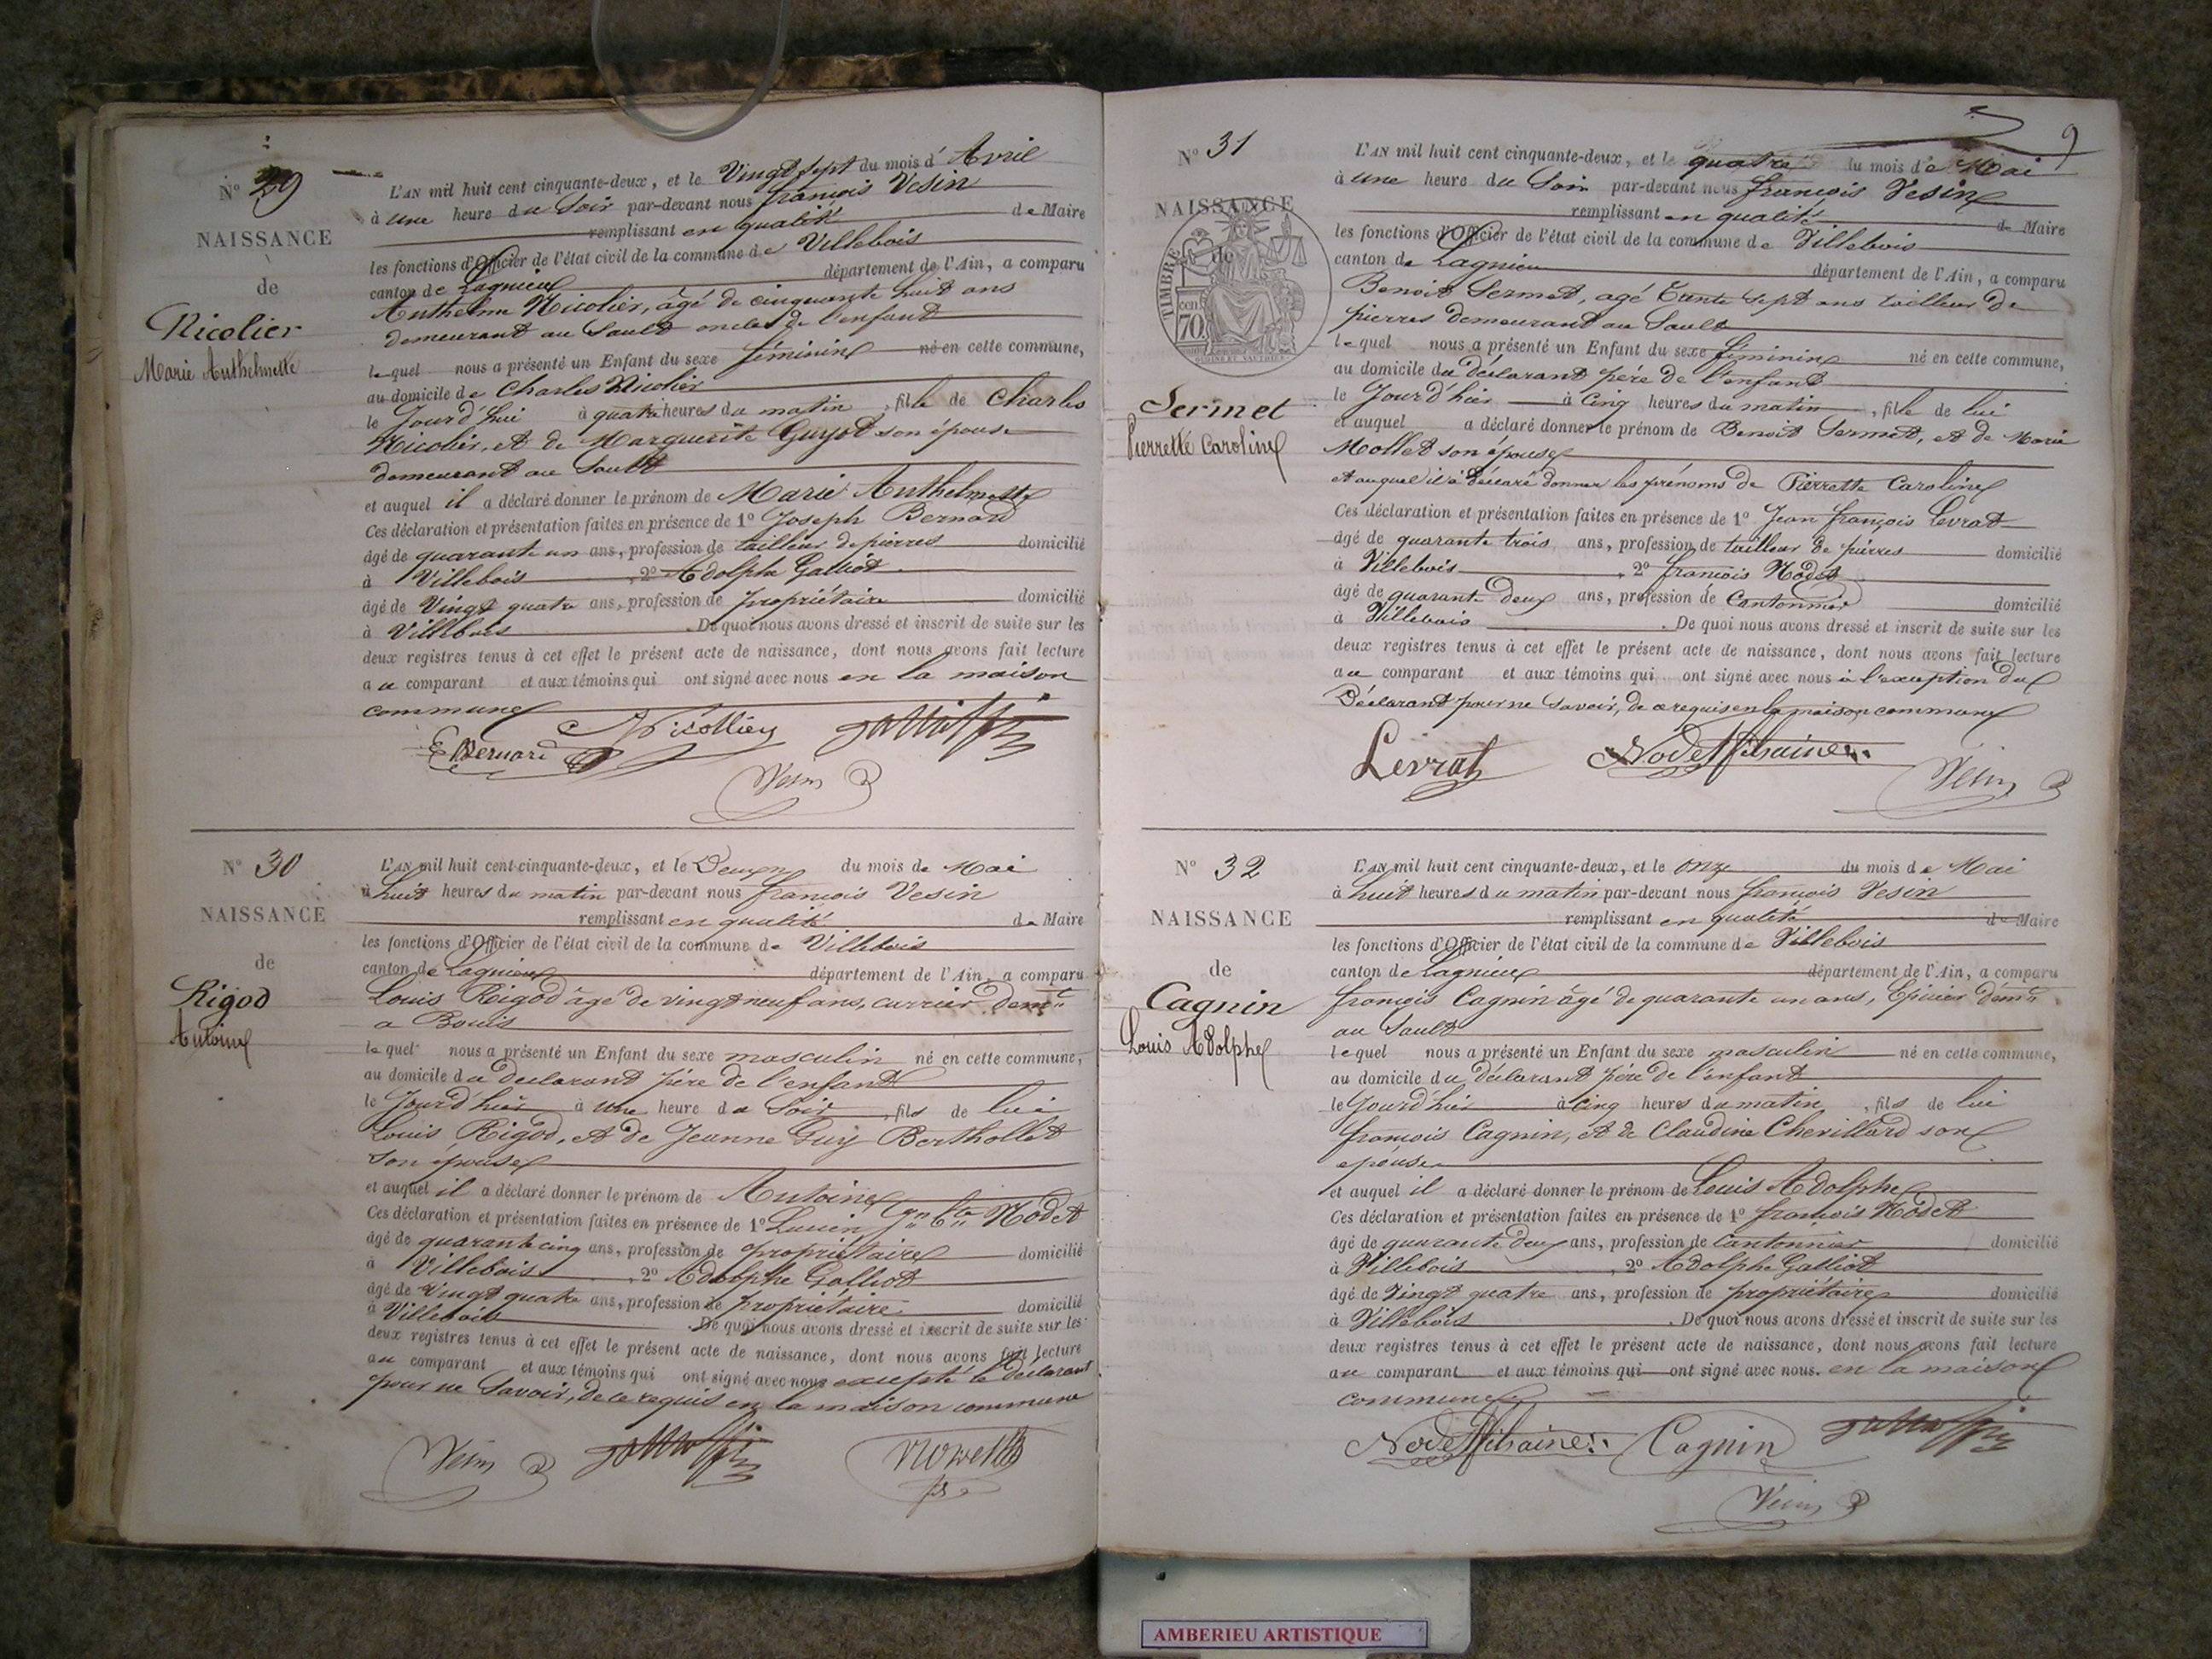 N° 29
NAISSANCE
de
Nicolier
Marie Anthelmette
L'AN mil huit cent cinquante-deux, et le Vingt sept du mois d' Avril
à une heure du Soir par-devant nous françois Vesin
remplissant en qualité de Maire
les fonctions d'Officier de l'état civil de la commune de Villebois
canton de Lagnieu département de l'Ain, a comparu
Anthelme Nicolier, âgé de cinquante huit ans
demeurant au Sault oncle de l'enfant
lequel nous a présenté un Enfant du sexe féminin né en cette commune,
au domicile de Charles Nicolier
le Jourd'hui à quatre heures du matin, fille de Charles
Nicolier, et de Marguerite Guyot son épouse
demeurant au Sault
et auquel il a déclaré donner le prénom de Marie Anthelmette
Ces déclaration et présentation faites en présence de 1° Joseph Bernard
âgé de quarante un ans, profession de tailleur de pierres domicilié
à Villebois, 2° Adolphe Galliot
âgé de Vingt quatre ans, profession de propriétaire domicilié
à Villebois. De quoi nous avons dressé et inscrit de suite sur les
deux registres tenus à cet effet le présent acte de naissance, dont nous avons fait lecture
au comparant et aux témoins qui ont signé avec nous en la maison
commune
Nicollier
E Bernard
Vesin
N° 30
NAISSANCE
de
Rigod
Antoine
L'AN mil huit cent cinquante-deux, et le Deux du mois de Mai
à huit heures du matin par-devant nous françois Vesin
remplissant en qualité de Maire
les fonctions d'Officier de l'état civil de la commune de Villebois
canton de Lagnieu département de l'Ain, a comparu
Louis Rigod âgé de vingt neuf ans, carrier demt
a Bouis
lequel nous a présenté un Enfant du sexe masculin né en cette commune,
au domicile du declarant père de l'enfant
le Jourd'hier à une heure du Soir, fils de lui
Louis Rigod, et de Jeanne Guy Berthollet
son épouse
et auquel il a déclaré donner le prénom de Antoine
Ces déclaration et présentation faites en présence de 1° Lucien Jn Bte Nodet
âgé de quarante cinq ans, profession de propriétaire domicilié
à Villebois, 2° Adolphe Galliot
âgé de Vingt quatre ans, profession de propriétaire domicilié
à Villebois. De quoi nous avons dressé et inscrit de suite sur les
deux registres tenus à cet effet le présent acte de naissance, dont nous avons fait lecture
au comparant et aux témoins qui ont signé avec nous excepté le déclarant
pour ne Savoir, de ce requis en la maison commune
Vesin
N° 31
9
NAISSANCE
de
TIMBRE
70
Sermet
Pierrette Caroline
L'AN mil huit cent cinquante-deux, et le quatre du mois de Mai
à une heure du Soir par-devant nous françois Vesin
remplissant en qualité de Maire
les fonctions d'Officier de l'état civil de la commune de Villebois
canton de Lagnieu département de l'Ain, a comparu
Benoit Sermet, agé trente sept ans tailleur de
pierres demeurant au Sault
lequel nous a présenté un Enfant du sexe féminin né en cette commune,
au domicile du déclarant père de l'enfant
le Jourd'hier à Cinq heures du matin, fille de lui
et auquel a déclaré donner le prénom de Benoit Sermet, et de Marie
Mollet son épouse
et auquel il a déclaré donner les prénoms de Pierrette Caroline
Ces déclaration et présentation faites en présence de 1° Jean françois Levrat
âgé de quarante trois ans, profession de tailleur de pierres domicilié
à Villebois, 2° francois Nodet
âgé de quarante deux ans, profession de Cantonnier domicilié
à Villebois. De quoi nous avons dressé et inscrit de suite sur les
deux registres tenus à cet effet le présent acte de naissance, dont nous avons fait lecture
au comparant et aux témoins qui ont signé avec nous à l'exception du
Déclarant pour ne savoir, de ce requis en la maison commune
Levrat
Vesin
N° 32
NAISSANCE
de
Cagnin
Louis Adolphe
L'AN mil huit cent cinquante-deux, et le onze du mois de Mai
à huit heures du matin par-devant nous françois Vesin
remplissant en qualité de Maire
les fonctions d'Officier de l'état civil de la commune de Villebois
canton de Lagnieu département de l'Ain, a comparu
françois Cagnin âgé de quarante un ans, Epicier demt
au Sault
lequel nous a présenté un Enfant du sexe masculin né en cette commune,
au domicile du déclarant père de l'enfant
le Jourd'hier à cinq heures du matin, fils de lui
françois Cagnin, et de Claudine Chevillard son
epouse
et auquel il a déclaré donner le prénom de Louis Adolphe
Ces déclaration et présentation faites en présence de 1° françois Nodet
âgé de quarante deux ans, profession de Cantonnier domicilié
à Villebois, 2° Adolphe Galliot
âgé de Vingt quatre ans, profession de propriétaire domicilié
à Villebois. De quoi nous avons dressé et inscrit de suite sur les
deux registres tenus à cet effet le présent acte de naissance, dont nous avons fait lecture
au comparant et aux témoins qui ont signé avec nous. en la maison
commune
Cagnin
Vesin
AMBERIEU ARTISTIQUE